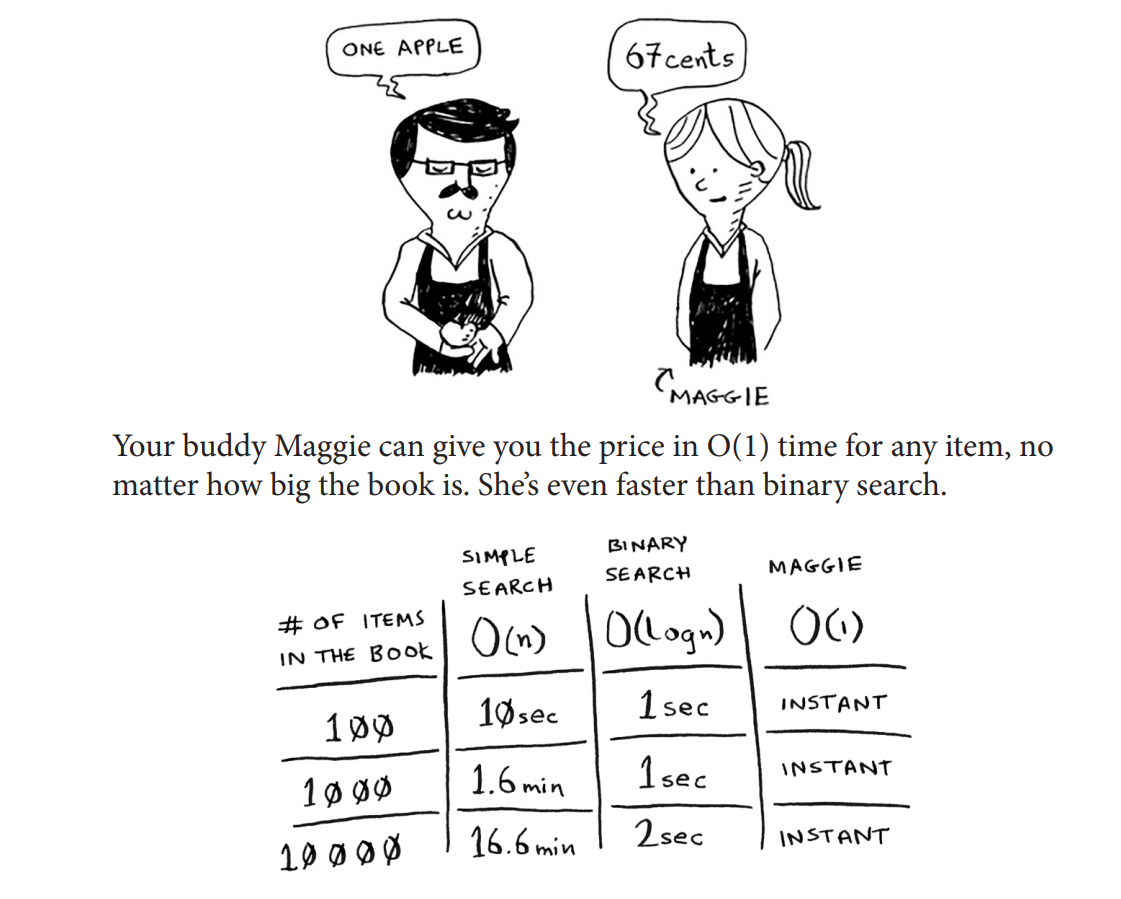 ONE APPLE
67cents
MAGGIE
Your buddy Maggie can give you the price in O(1) time for any item, no
matter how big the book is. She’s even faster than binary search.
# OF ITEMS IN THE BOOK | SIMPLE SEARCH O(n) | BINARY SEARCH O(logn) | MAGGIE O(1)
100 | 10sec | 1sec | INSTANT
1000 | 1.6min | 1sec | INSTANT
10000 | 16.6min | 2sec | INSTANT